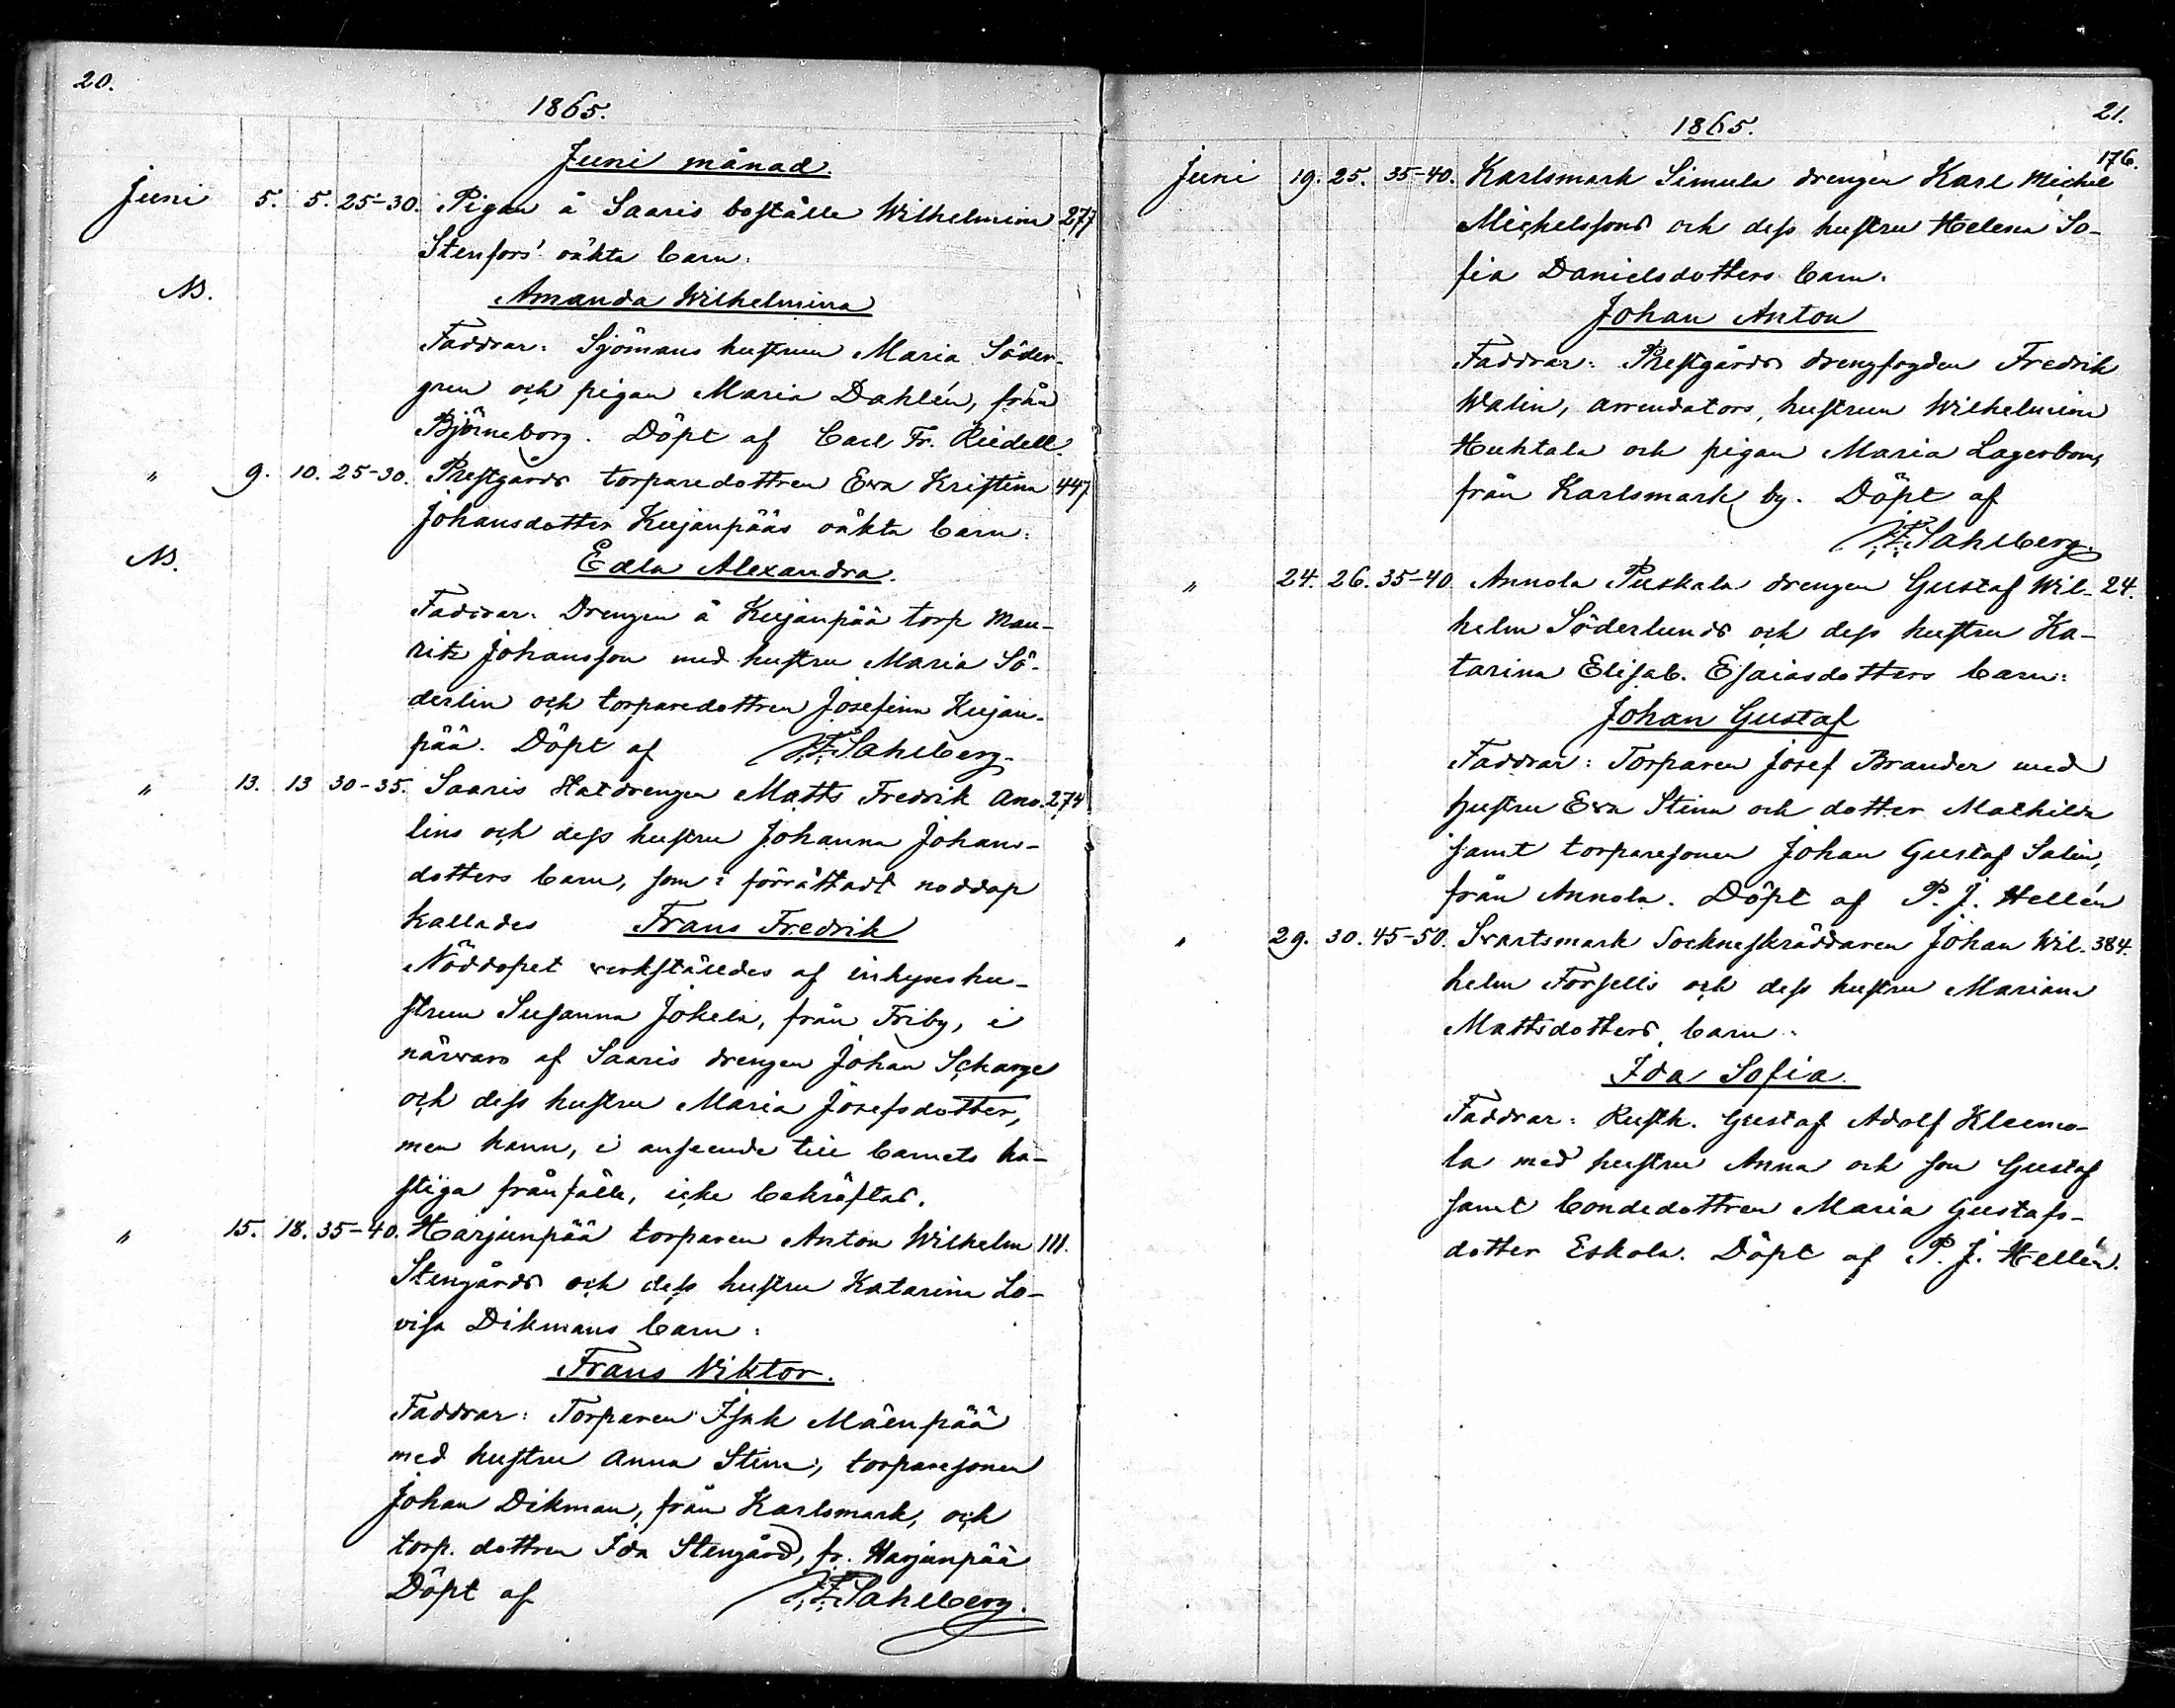 20.
1865.
Juni månad.
Juni 5. 5. 25-30. Pigan å Saaris boställe Wilhelmina 277
Stenfors' oäkta barn:
NB. Amanda Wilhelmina
Faddrar: Sjömans hustrun Maria Söder-
gren och pigan Maria Dahlén, från
Björneborg. Döpt af Carl Fr. Riedell.
" 9. 10. 25-30. Prestgårds torparedottren Eva Kristina 447
Johansdotter Kujanpääs oäkta barn:
NB. Edla Alexandra.
Faddrar: Drengen å Kujanpää torp Mau-
ritz Johansson med hustru Maria Sö-
derlin och torparedottren Josefina Kujan-
pää. Döpt af F. Sahlberg.
" 13. 13 30-35. Saaris Statdrengen Matts Fredrik Ano- 274
lins och dess hustru Johanna Johans-
dotters barn, som i förrättadt noddop
kallades Frans Fredrik
Nöddopet verkställdes af inhyseshu-
strun Susanna Jokela, från Friby, i
närvaro af Saaris drengen Johan Scharge
och dess hustru Maria Josefsdotter,
men kann, i anseende till barnets ha-
stiga frånfälle, icke bekräftas.
" 15. 18. 35-40. Harjunpää torparen Anton Wilhelm 111.
Stengårds och dess hustru Katarina Lo-
visa Dikmans barn:
Frans Viktor.
Faddrar: Torparen Isak Mäenpää
med hustru Anna Stina, torparesonen
Johan Dikman, från Karlsmark, och
torp. dottren Ida Stengård, fr. Harjunpää
Döpt af F. Sahlberg.
21.
1865.
176.
Juni 19. 25. 35-40. Karlsmark Simula drengen Karl Michel
Michelssons och dess hustru Helena So-
fia Danielsdotters barn:
Johan Anton
Faddrar: Prestgårds drengfogden Fredrik
Walin, arrendators hustrun Wilhelmina
Huhtala och pigan Maria Lagerbom,
från Karlsmark by. Döpt af
F. Sahlberg.
" 24. 26. 35-40 Annola Puskala drengen Gustaf Wil- 24.
helm Söderlunds och dess hustru Ka-
tarina Elisab. Esaiasdotters barn:
Johan Gustaf
Faddrar: Torparen Josef Brander med
hustru Eva Stina och dotter Mathilda
samt torparesonen Johan Gustaf Salin,
från Annola. Döpt af P. J. Hellén
" 29. 30. 45-50. Svartsmark Sockneskräddaren Johan Wil- 384.
helm Forsells och dess hustru Mariana
Mattsdotters barn:
Ida Sofia.
Faddrar: Rusth. Gustaf Adolf Kleemo-
la med hustru Anna och son Gustaf
samt bondedottren Maria Gustafs-
dotter Eskola. Döpt af P. J. Hellén.